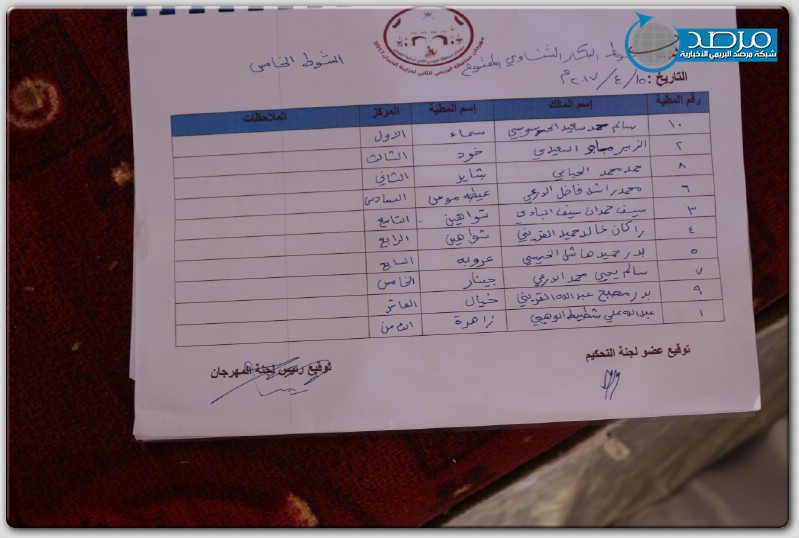 مرصد
شبكة مرصد البريمي الاخبارية
مهرجان محافظة البريمي الثاني لمزاينة
شوط البكار الثنايا المفتوح
الشوط الخامس
التاريخ : ١٥ / ٤ / ٢٠١٧م
رقم المطية إسم المالك إسم المطية المركز الملاحظات
١٠ سالم محمد سعيد الحرسوسي سماء الاول
٢ الزبير السعيدي خود الثالث
٨ حمد محمد الحبابي بشاير الثاني
٦ محمد راشد فاضل الدرعي السادس
٣ سيف حمدان سيف البادي شواهين التاسع
٤ راكان خالد حميد القريني شواهين الرابع
٥ بدر حميد هاشل الخيسي عروبه السابع
٧ سالم يحيى محمد الدرعي جينار الخامس
٩ بدر مصبح عبدالله القريني خيال العاشر
١ عبدالله علي شطيط الوهيبي زاهرة الثامن
توقيع عضو لجنة التحكيم
توقيع رئيس لجنة المهرجان